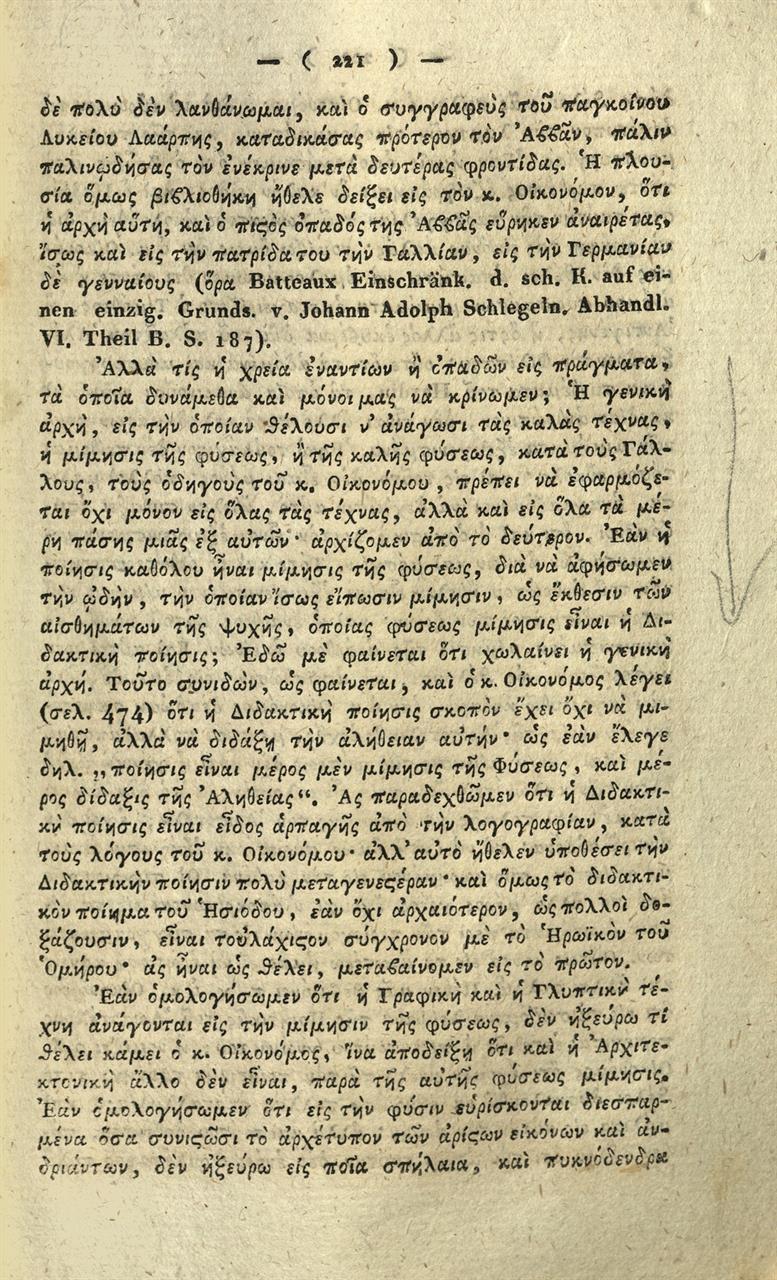 — ( 221 ) —
δὲ πολὺ δὲν λανθάνωμαι, καὶ ὁ συγγραφεὺς τοῦ παγκοίνου
Λυκείου Λαάρπης, καταδικάσας πρότερον τὸν Ἀββᾶν, πάλιν
παλινῳδήσας τὸν ἐνέκρινε μετὰ δευτέρας φροντίδας. Ἡ πλου-
σία ὅμως βιβλιοθήκη ἤθελε δείξει εἰς τὸν κ. Οἰκονόμον, ὅτι
ἡ ἀρχὴ αὕτη, καὶ ὁ πιςὸς ὀπαδός της Ἀββᾶς εὕρηκεν ἀναιρέτας,
ἴσως καὶ εἰς τὴν πατρίδα του τὴν Γάλλίαν, εἰς τὴν Γερμανίαν
δὲ γενναίους (ὅρα Batteaux Einschränk. d. sch. K. auf ei-
nen einzig. Grunds. v. Johann Adolph Schlegeln. Abhandl.
VI. Theil B. S. 187).
Ἀλλὰ τίς ἡ χρεία ἐναντίων ἢ ὀπαδῶν εἰς πράγματα,
τὰ ὁποῖα δυνάμεθα καὶ μόνοι μας νὰ κρίνωμεν; Ἡ γενικὴ
ἀρχὴ, εἰς τὴν ὁποίαν θέλουσι ν' ἀνάγωσι τὰς καλὰς τέχνας,
ἡ μίμησις τῆς φύσεως, ἢ τῆς καλῆς φύσεως, κατὰ τοὺς Γάλ-
λους, τοὺς ὁδηγοὺς τοῦ κ. Οἰκονόμου, πρέπει νὰ ἐφαρμόζε-
ται ὄχι μόνον εἰς ὅλας τὰς τέχνας, ἀλλὰ καὶ εἰς ὅλα τὰ μέ-
ρη πάσης μιᾶς ἐξ αὐτῶν· ἀρχίζομεν ἀπὸ τὸ δεύτερον. Ἐὰν ἡ
ποίησις καθόλου ἦναι μίμησις τῆς φύσεως, διὰ νὰ ἀφήσωμεν
τὴν ᾠδὴν, τὴν ὁποίαν ἴσως εἴπωσιν μίμησιν, ὡς ἔκθεσιν τῶν
αἰσθημάτων τῆς ψυχῆς, ὁποίας φύσεως μίμησις εἶναι ἡ Δι-
δακτικὴ ποίησις; Ἐδῶ μὲ φαίνεται ὅτι χωλαίνει ἡ γενικὴ
ἀρχή. Τοῦτο συνιδὼν, ὡς φαίνεται, καὶ ὁ κ. Οἰκονόμος λέγει
(σελ. 474) ὅτι ἡ Διδακτικὴ ποίησις σκοπὸν ἔχει ὄχι νὰ μι-
μηθῇ, ἀλλὰ νὰ διδάξῃ τὴν ἀλήθειαν αὐτήν· ὡς ἐὰν ἔλεγε
δηλ. „ποίησις εἶναι μέρος μὲν μίμησις τῆς Φύσεως, καὶ μέ-
ρος δίδαξις τῆς Ἀληθείας“. Ἂς παραδεχθῶμεν ὅτι ἡ Διδακτι-
κὴ ποίησις εἶναι εἶδος ἁρπαγῆς ἀπὸ τὴν λογογραφίαν, κατὰ
τοὺς λόγους τοῦ κ. Οἰκονόμου· ἀλλ' αὐτὸ ἤθελεν ὑποθέσει τὴν
Διδακτικὴν ποίησιν πολὺ μεταγενεςέραν· καὶ ὅμως τὸ διδακτι-
κὸν ποίημα τοῦ Ἡσιόδου, ἐὰν ὄχι ἀρχαιότερον, ὡς πολλοὶ δο-
ξάζουσιν, εἶναι τοὐλάχιςον σύγχρονον μὲ τὸ Ἡρωϊκὸν τοῦ
Ὁμήρου· ἂς ἦναι ὡς θέλει, μεταβαίνομεν εἰς τὸ πρῶτον.
Ἐὰν ὁμολογήσωμεν ὅτι ἡ Γραφικὴ καὶ ἡ Γλυπτικὴ τέ-
χνη ἀνάγονται εἰς τὴν μίμησιν τῆς φύσεως, δὲν ἠξεύρω τί
θέλει κάμει ὁ κ. Οἰκονόμος, ἵνα ἀποδείξῃ ὅτι καὶ ἡ Ἀρχιτε-
κτονικὴ ἄλλο δὲν εἶναι, παρὰ τῆς αὐτῆς φύσεως μίμησις.
Ἐὰν ὁμολογήσωμεν ὅτι εἰς τὴν φύσιν εὑρίσκονται διεσπαρ-
μένα ὅσα συνιςῶσι τὸ ἀρχέτυπον τῶν ἀρίςων εἰκόνων καὶ ἀν-
δριάντων, δὲν ἠξεύρω εἰς ποῖα σπήλαια, καὶ πυκνόδενδρα